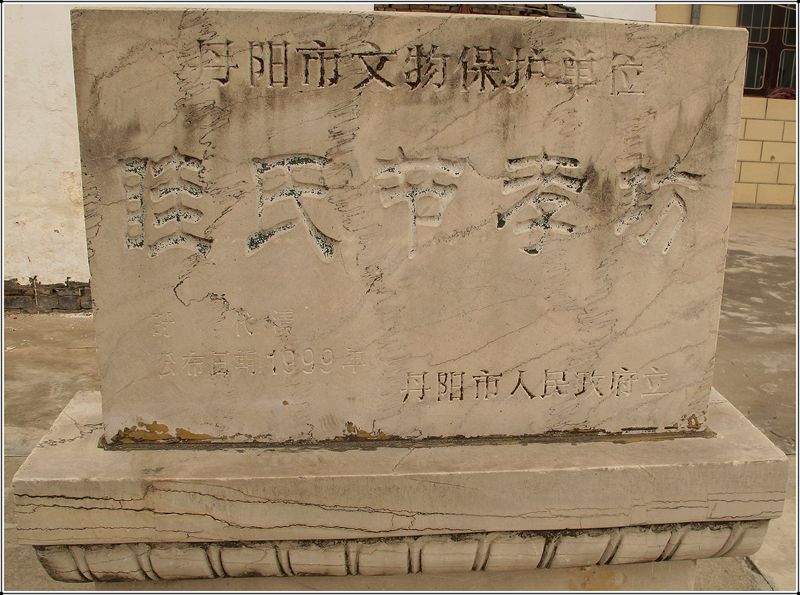 丹阳市文物保护单位
眭氏节孝坊
时 代 清
公布日期 1999年
丹阳市人民政府立